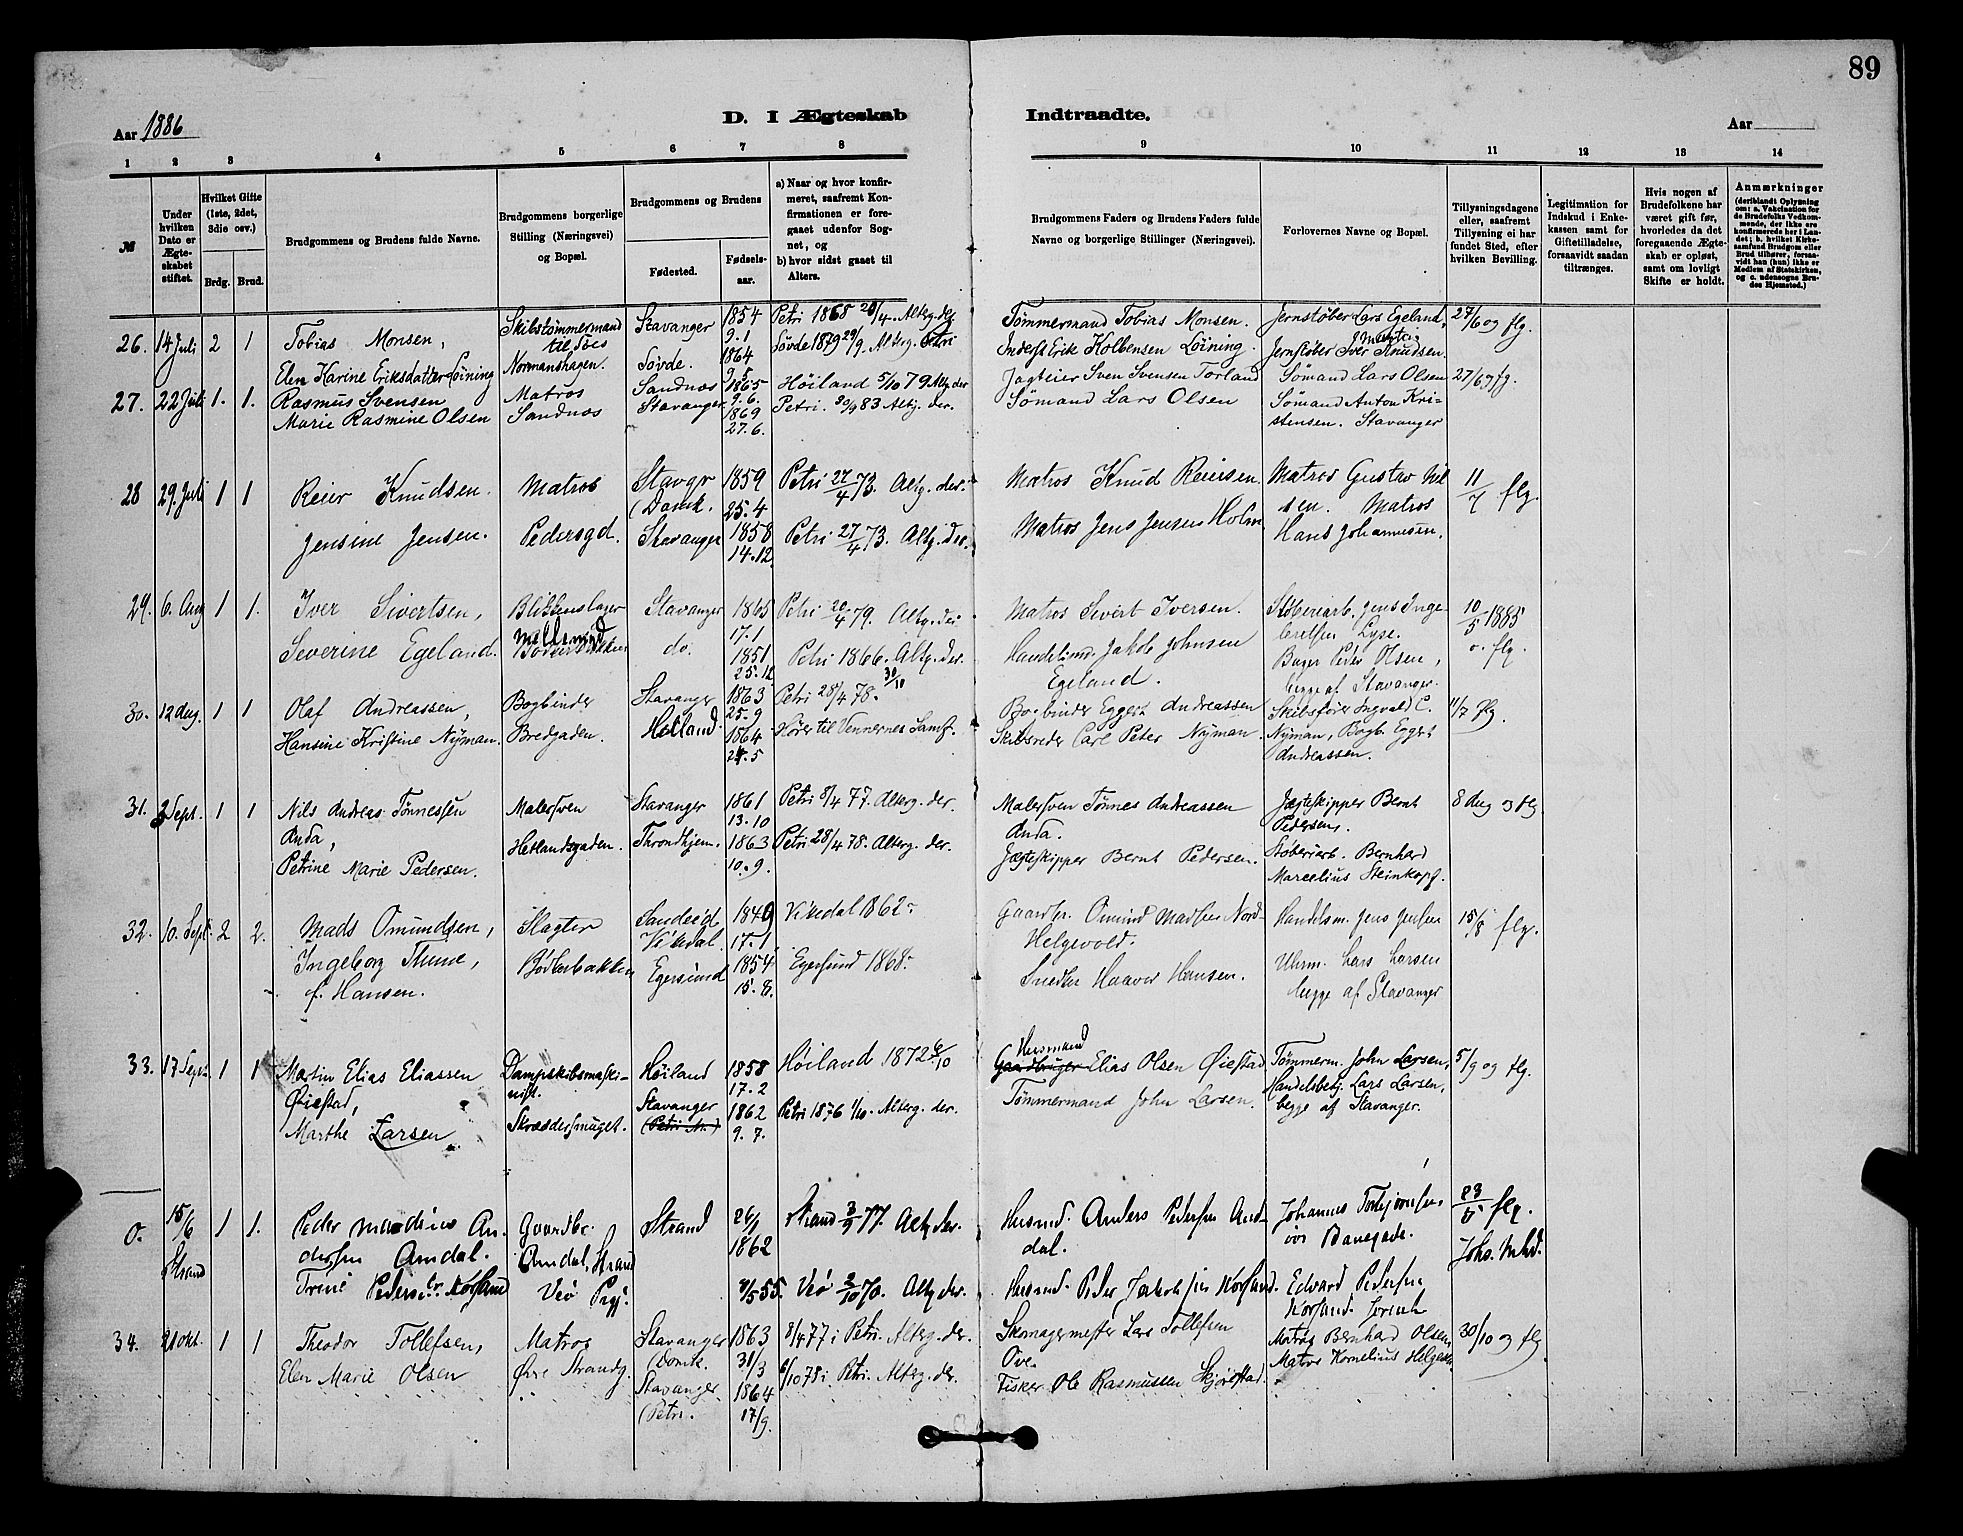 89
Aar 1886
D. I Ægteskab
Indtraadte.
Aar
1 2 3 4 5 6 7 8 9 10 11 12 13 14
№
Under hvilken Dato er Ægteskabet stiftet.
Hvilket Gifte (1ste, 2det, 3die osv.)
Brdg. Brud.
Brudgommens og Brudens fulde Navne.
Brudgommens borgerlige Stilling (Næringsvei) og Bopæl.
Brudgommens og Brudens
Fødested.
Fødselsaar.
a) Naar og hvor konfirmeret, saafremt Konfirmationen er foregaaet udenfor Sognet, og
b) hvor sidst gaaet til Alters.
Brudgommens Faders og Brudens Faders fulde Navne og borgerlige Stillinger (Næringsvei).
Forlovernes Navne og Bopæl.
Tillysningsdagene eller, saafremt Tillysning ei har fundet Sted, efter hvilken Bevilling.
Legitimation for Indskud i Enkekassen samt for Giftetilladelse, forsaavidt saadan tiltrænges.
Hvis nogen af Brudefolkene har været gift før, hvorledes da det foregaaende Ægteskab er opløst, samt om lovligt Skifte er holdt.
Anmærkninger (deriblandt Oplysning om: a. Vakcination for de Brudefolks Vedkommende, der ikke ere konfirmerede her i Landet; b. hvilket Kirkesamfund Brudgom eller Brud tilhører, forsaavidt han (hun) ikke er Medlem af Statskirken, og c. udensogns Brudes Hjemsted.)
26. 14 Juli 2 1 Tobias Monsen, Skibstømmermand tilsøes Stavanger 1854 9.1 Petri 1868 26/4. Altbg. der Tømmermand Tobias Monsen. Jernstøber Lars Egeland, 27/6 og flg.
Elen Karine Eriksdatter Löining Normanshagen. Sövde. 1864 Sövde 1879 29/9. Altbg. Petri Inderst Erik Kolbensen Löining. Jernstøber Iver Knudsen.
27. 22 Juli 1. 1. Rasmus Svensen Matros Sandnæs 1865 9.6. Höiland 5/10 79 Altg der Jagteier Sven Svensen Torland Sömand Lars Olsen 27/6 og fg.
Marie Rasmine Olsen Sandnæs Stavanger 1869 27.6. Petri. 30/9 83 Altg. der. Sömand Lars Olsen Sömand Anton Kristensen. Stavanger
28 29. Juli 1 1 Reier Knudsen. Matros Stavgr (Domk. 1859 25.4 Petri 27/4 73. Altg. der. Matros Knud Reiersen Matros Gustav Nilsen. 11/7 flg.
Jensine Jensen. Pedersgd. Stavanger 1858 14.12. Petri 27/4 73. Altg. der. Matros Jens Jensen Holm Matros Hans Johannesen.
29. 6. Aug 1 1. Iver Sivertsen, Blikkenslager Stavanger 1865 17.1 Petri 20/4 79. Altg. der Matros Sivert Iversen. Støberiarb. Jens Ingebretsen Lyse. 10/5 1885 o. flg.
Severine Egeland. do. 1851 25.12 Petri 1866. Altg. der. 30/10 Handelsm. Jakob Johnsen Egeland. Bager Peder Olsen, begge af Stavanger.
30. 12 Aug. 1 1 Olaf Andreassen, Bogbinder Stavanger 1863 25.9 Petri 28/4 78. Bogbinder Eggert Andreassen Skibsfører Ingvald C. Nÿman, Bogb. Eggert Andreassen. 11/7 flg.
Hansine Kristine Nÿman. Bredgaden. Hetland. 1864 24.5 Hører til Vennernes Samf. Skibsreder Carl Peter Nÿman
31. 3 Sept. 1 1 Nils Andreas Tønnessen Anda, Malersven Stavanger 1861 13.10 Petri 8/4 77. Altbg. der. Malersven Tönnes Andreassen Anda. Jægteskipper Bernt Pedersen. 8 Aug og flg
Petrine Marie Pedersen. Hetlandsgaden. Throndhjem. 1863 10.9. Petri 28/4 78. Altbg. der. Jægteskipper Bernt Pedersen. Støberiarb. Bernhard Marcelius Steinkopf.
32. 10. Sept. 2 2. Mads Omundsen, Slagter Sandeid Vikedal. 1849 17.1 Vikedal 1862. Gaardbr. Omund Madsen Nord-Helgevold. Handelsm. Jens Jensen 15/8 flg.
Ingeborg Thime, f. Hansen. Bödkerbakken Egersund 1854 15.8. Egersund 1868. Snedker Haaver Hansen. Uhrm. Lars Larsen begge af Stavanger
33. 17 Sept. 1 1 Martin Elias Eliassen Øiestad, Dampskibsmaskinist. Höiland 1858 17.2 Höiland 1872 6/10 Gaardbruger Husmand Elias Olsen Øiestad Tømmerm. John Larsen, 5/9 og flg.
Marthe Larsen Skræddersmuget. Stavanger (Petri M.) 1862 9.7. Petri 1876 1/10. Altbg. der. Tømmermand John Larsen. Handelsbetj. Lars Larsen, begge af Stavanger.
0. 15/6 Strand 1 1. Peder Mardius Andersen Amdal. Gaardbr. Amdal, Strand Strand 26/1 1862 Strand 3/9 77. Altg der. Husmd. Anders Pedersen Amdal. Johannes 23/5 flg.
Johs. Mhd.
Trine Pedersdr. Korsland Veö Pgj. 4/5 55. Veö 2/10 70. Altg der. Husmd. Peder Jakobsen Korsland. Edvard Pedersen Korsland.
34. 21 Okt. 1 1 Theodor Tollefsen, Matros Stavanger (Domk. 1863 31/3 8/4 77 i Petri. Altbg. der. Skomagermester Lars Tollefsen Ove. Matros Bernhard Olsen, 30/10 og flg.
Elen Marie Olsen Øvre Strandg. Stavanger (Petri. 1864 17/9 6/10 78 i Petri. Altbg. der. Fisker Ole Rasmussen Skjörestad. Matros Kornelius Helgesen